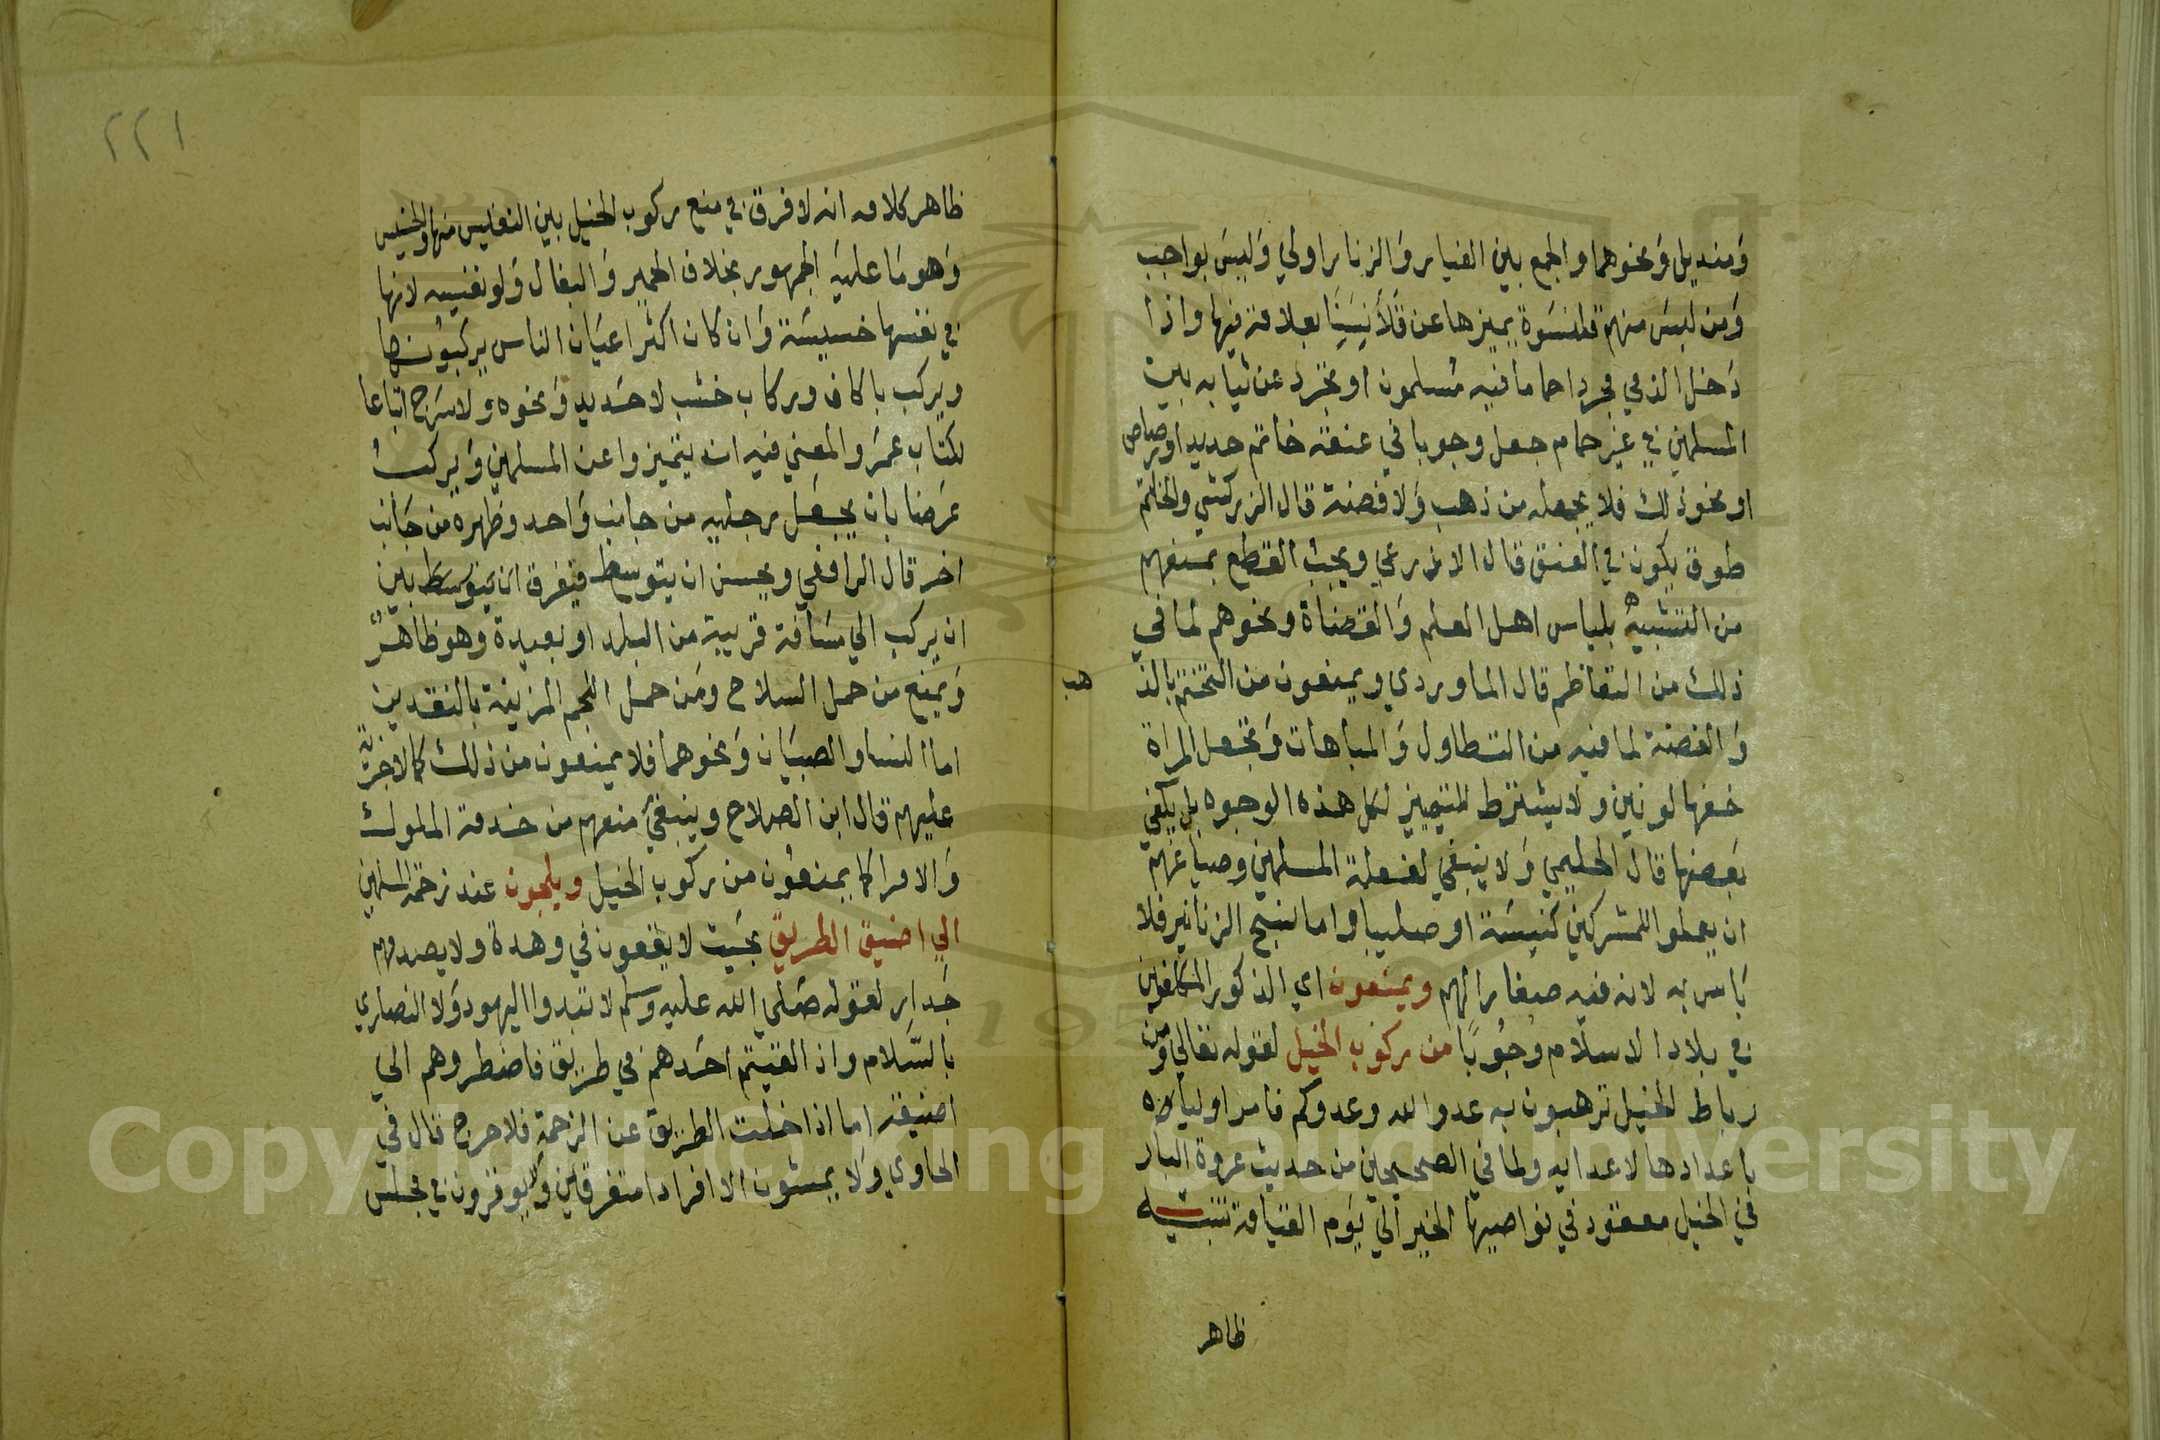 ومنديل ونحوهما والجمع بين الغيار والزنار اولي وليس بواجب
ومن لبس منهم قلنسوة يميزها عن قلانسنا بعلامة فيها واذا
دخل الذمي مجردا حماما فيه مسلمون او تجرد عن ثيابه بين
المسلمين في غير حمام جعل وجوبا في عنقه خاتم حديد او رصاص
او نحو ذلك فلا يجعله من ذهب ولا فضة قال الزركشي والخاتم
طوق يكون في العنق قال الاذرعي ويجب القطع بمنعهم
من التشبيه بلباس اهل العلم والقضاة ونحوهم لما في
ذلك من التعاظم قال الماوردي ويمنعون من التختم بالذ
هب
والفضة لما فيه من التطاول والمباهات وتجعل المراة
خفها لونين ولا يشترط للتمييز بكل هذه الوجوه بل يكفي
بعضها قال الحليمي ولا ينبغي لفعلة المسلمين وصياغهم
ان يعملوا للمشركين كنيسة او صليبا واما نسج الزنانير فلا
باس به لانه فيه صغارا لهم ويمنعون اي الذكور المكلفون
في بلاد الاسلام وجوبا من ركوب الخيل لقوله تعالي ومن
رباط الخيل ترهبون به عدو الله وعدوكم فامر اولياه
باعدادها لاعدايه ولما في الصحيحين من حديث عروة البار
في الخيل معقود في نواصيها الخير الي يوم القيامة تنبيه
ظاهر
٢٢١
ظاهر كلامه انه لا فرق في منع ركوب الخيل بين النفيس منها والخسيس
وهو ما عليه الجمهور بخلاف الحمير والبغال ولو نفيسه لانها
في نفسها خسيسة وان كان اكثر اعيان الناس يركبونها
ويركب باكاف وركاب خشب لا حديد ونحوه ولا سرج اتباعا
لكتاب عمر والمعني فيه ان يتميزوا عن المسلمين ويركب
عرضا بان يجعل رجليه من جانب واحد وظهره من جانب
اخر قال الرافعي ويحسن ان يتوسط فيفرق ان يتوسط بين
ان يركب الي مسافة قريبة من البلد او بعيدة وهو ظاهر
ويمنع من حمل السلاح ومن حمل اللجم المزينة بالنقدين
اما النسا والصبيان ونحوهما فلا يمنعون من ذلك كما لا جزية
عليهم قال ابن الصلاح وينبغي منعهم من خدمة الملوك
والامرا كما يمنعون من ركوب الخيل ويلجون عند زحمة المسلمين
الي اضيق الطريق بحيث لا يقعون في وهدة ولا يصدمهم
جدار لقوله صلي الله عليه وسلم لا تبدوا اليهود ولا النصاري
بالسلام واذ القيتم احدهم في طريق فاضطروهم الي
اضيقه اما اذا خلت الطريق عن الزحمة فلا حرج قال في
الحاوي ولا يمشون الا افرادا متفرقين ولا يوقرون في مجلس
Copyright © King Saud University